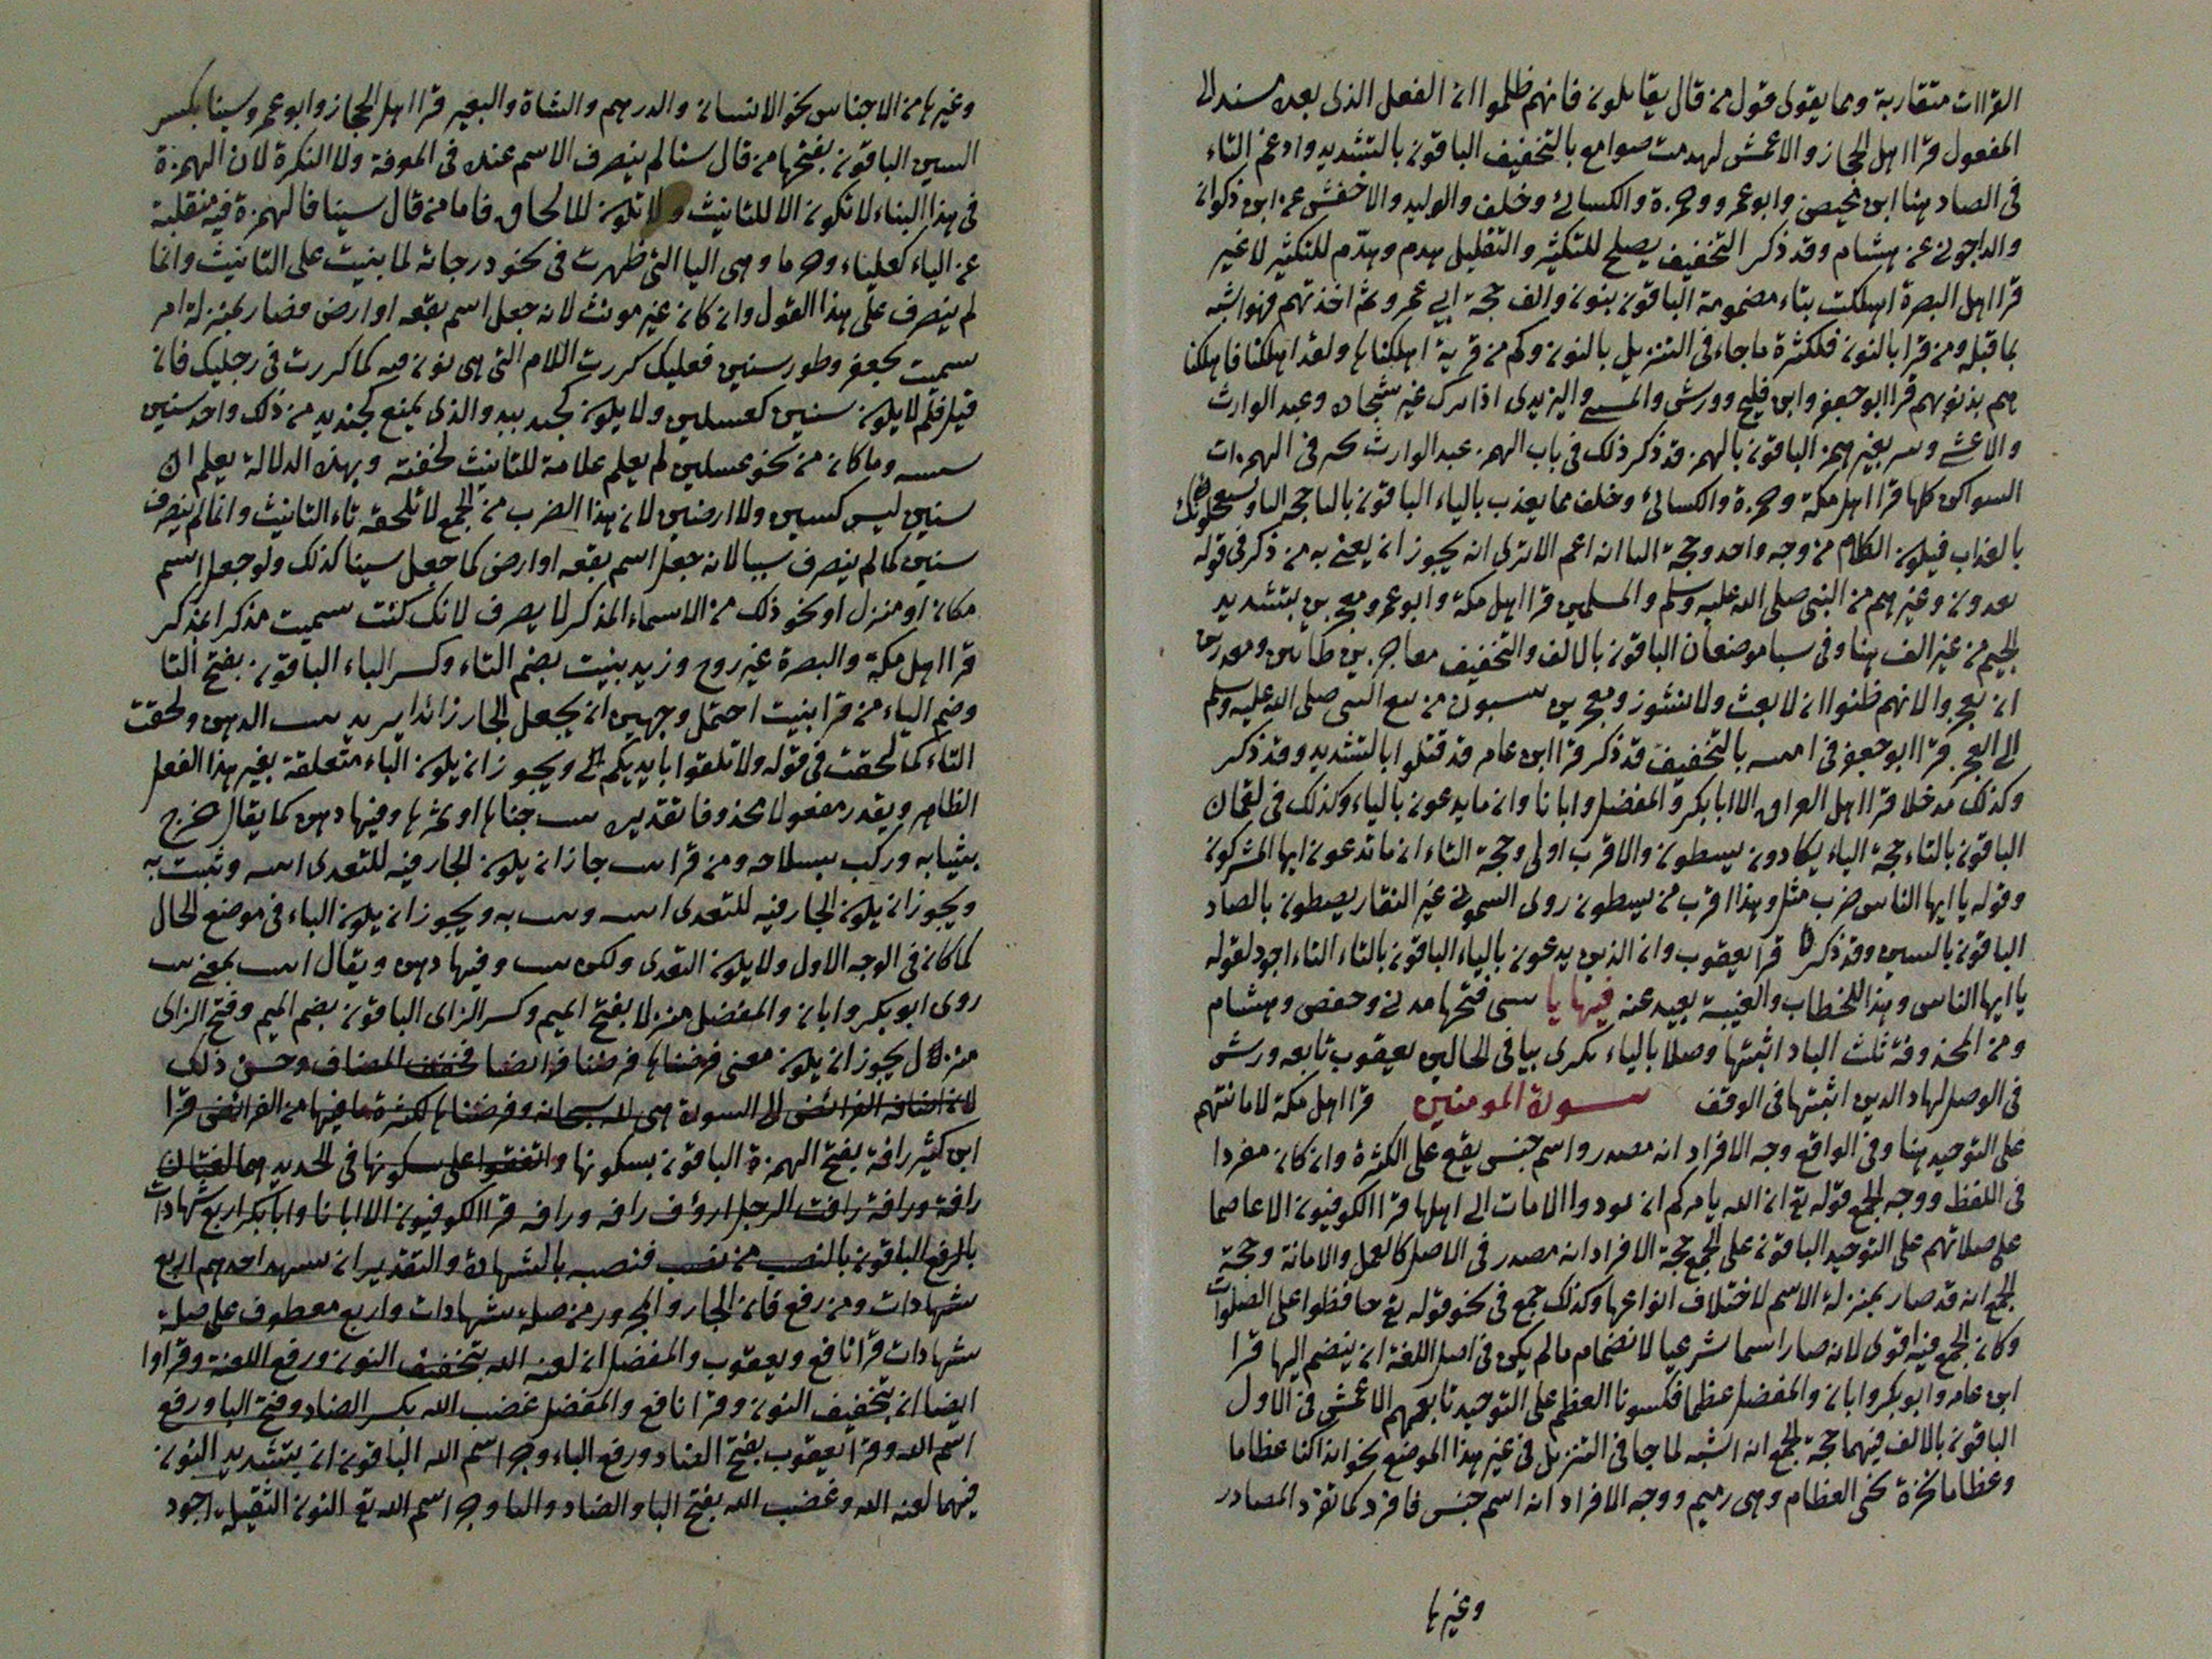 القراات متقاربة ومما يقوى قول من قال يقاتلون فانهم ظلموا ان الفعل الذى بعده مسند الى
المفعول قرا اهل الحجاز والاعمش لهدمت صوامع بالتخفيف الباقون بالتشديد وادغم التاء
فى الصاد هنا ابن محيصن وابو عمرو وحمزة والكسائى وخلف والوليد والاخفش عن ابن ذكوان
والداجونى عن هشام وقد ذكر التخفيف يصلح للتكثير والتقليل هدم وهدّم للتكثير لا غير
قرا اهل البصرة اهلكت بتاء مضمومة الباقون بنون والف حجة ابى عمرو ثم اخذتهم فهو اشبه
بما قبله ومن قرا بالنون فلكثرة ما جاء فى التنزيل بالنون وكم من قرية اهلكناها ولقد اهلكنا فاهلكنا
هم بذنوبهم قرا ابو جعفر وابن فليح وورش واليزيدى اذا ترك غير شجاع وعبد الوارث
والاعشى وبير بغير همز الباقون بالهمز قد ذكر ذلك فى باب الهمز عبد الوارث فى الهمزات
السواكن كلها قرا اهل مكة وحمزة والكسائى وخلف مما يعدون بالياء الباقون بالتا حجة اليا ويستعجلونك
بالعذاب فيكون الكلام من وجه واحد وحجة التا انه اعم الا ترى انه يجوز ان يعنى به من ذكر فى قوله
يعدون وغيرهم من النبى صلى الله عليه وسلم والمسلمين قرا اهل مكة وابو عمرو معجزين بتشديد
الجيم من غير الف هنا وفى سبا موضعان الباقون بالالف والتخفيف معاجزين ظانين ومقدرين
ان يعجزوا لانهم ظنوا ان لا بعث ولا نشور ومعجزين من تبع النبى صلى الله عليه وسلم
الى العجز قرا ابو جعفر فى امنيته بالتخفيف قد ذكر قرا ابن عامر قد قتلوا بالتشديد وقد ذكر
وكذلك مدخلا قرا اهل العراق الا ابا بكر والمفضل وابانا وان ما يدعون بالياء وكذلك فى لقمان
الباقون بالتاء حجة الياء يكادون يسطون والاقرب اولى وحجة التاء ان ما تدعون ايها المشركون
وقوله يا ايها الناس ضرب مثل وهذا اقرب من يسطون روى السمونى غير النقار يصطون بالصاد
الباقون بالسين وقد ذكر قرا يعقوب وان الذين يدعون بالياء الباقون بالتاء التاء اجود لقوله
يا ايها الناس وهذا للخطاب والغيبة بعيد عنه فيها يا بيتى فتحها مدنى وحفص وهشام
ومن المحذوفة ثلث الباد اثبتها وصلا بالياء نكيرى بيا فى الحالين يعقوب تابعه ورش
فى الوصل لهاد الذين اثبتها فى الوقف سورة المومنين قرا اهل مكة لامانتهم
على التوحيد هنا وفى الواقع وجه الافراد انه مصدر واسم جنس يقع على الكثرة وان كان مفردا
فى اللفظ ووجه الجمع قوله تع ان الله يامركم ان تودوا الامانات الى اهلها قرا الكوفيون الا عاصما
على صلاتهم على التوحيد الباقون على الجمع حجة الافراد انه مصدر فى الاصل كالعمل والامانة وحجة
الجمع انه قد صار بمنزلة الاسم لاختلاف انواعها وكذلك جمع فى نحو قوله تع حافظوا على الصلوات
وكان الجمع فيه اقوى لانه صار اسما شرعيا لانضمام ما لم يكن فى اصل اللغة ان ينضم اليها قرا
ابن عامر وابو بكر وابان والمفضل عظما فكسونا العظم على التوحيد تابعهم الاعمش فى الاول
الباقون بالالف فيهما حجة الجمع انه اشبه لما جا فى التنزيل فى غير هذا الموضع نحو ائذا كنا عظاما
وعظاما نخرة نحى العظام وهى رميم ووجه الافراد انه اسم جنس فافرد كما تفرد المصادر
وغيرها
وغيرها من الاجناس نحو الانسان والدرهم والشاة والبعير قرا اهل الحجاز وابو عمرو سينا بكسر
السين الباقون بفتحها من قال سينا لم ينصرف الاسم عنده فى المعرفة ولا النكرة لان الهمزة
فى هذا البناء لا تكون الا للتانيث ولا تكون للالحاق فاما من قال سينا فالهمزة فيه منقلبة
عن الياء كعلباء وهى اليا التى ظهرت فى نحو درحاية لما بنيت على التانيث وانما
لم ينصرف على هذا القول وان كان غير مونث لانه جعل اسم بقعه او ارض فصار بمنزلة امر
سميت بجعفر وطور سنين فعليل كررت اللام التى هى نون فيه كما كررت فى رحليل فان
قيل فلم لا يكون سنين كغسلين ولا يكون والذى يمنع من ذلك واحد سنين
وما كان من نحو غسلين لم يعلم علامة للتانيث لخفته وبهذه الدلالة يعلم ان
سنين ليس كسنين ولا ارضين لان هذا الضرب من الجمع لا تلحقه تاء التانيث وانما لم ينصرف
سنين كما لم ينصرف سينا لانه جعل اسم بقعه او ارض كما جعل سينا كذلك ولو جعل اسم
مكان او منزل او نحو ذلك من الاسماء المذكر لا يصرف لانك كنت سميت مذكرا بمذكر
قرا اهل مكة والبصرة غير روح وزيد تنبت بضم التاء وكسر الباء الباقون بفتح التا
وضم الباء من قرا تنبت احتمل وجهين ان يجعل الجار زائدا يريد تنبت الدهن ولحقت
التاء كما لحقت فى قوله ولا تلقوا بايديكم الى ويجوز ان يكون الباء متعلقة بغير هذا الفعل
الظاهر ويقدر مفعولا محذوفا تقديره تنبت جناها او ثمرها وفيها دهن كما يقال خرج
بثيابه وركب بسلاحه ومن قرا تنبت جاز ان يكون الجار فيه للتعدى انبته ونبت به
ويجوز ان يكون الجار فيه للتعدى انبته ونبت به ويجوز ان يكون الباء فى موضع الحال
كما كان فى الوجه الاول ولا يكون التعدى ولكن تنبت وفيها دهن ويقال انبت بمعنى نبت
روى ابو بكر وابان والمفضل منزلا بفتح الميم وكسر الزاى الباقون بضم الميم وفتح الزاى
منزلا يجوز ان يكون معنى فرضناها فرضنا فرائضها فحذف المضاف وحسن ذلك
لان اضافة الفرائض الى السورة هى لله سبحانه وفرضناها لكثرة ما فيها من الفرائض قرا
ابن كثير رافة بفتح الهمزة الباقون بسكونها واتفقوا على سكونها فى الحديد هما لغتان
رافة ورافة رافت الرجل اروف رافه ورافه قرا الكوفيون الا ابانا وابا بكر اربع شهادات
بالرفع الباقون بالنصب من نصب فنصبه بالشهادة والتقدير ان يشهد احدهم اربع
شهادات ومن رفع فان الجار والمجرور من صلة شهادات واربع معطوف على صلة
شهادات قرا نافع ويعقوب والمفضل ان لعنه الله بتخفيف النون ورفع اللعنة وقراوا
ايضا ان بتخفيف النون وقرا نافع والمفضل غضب الله بكسر الضاد وفتح البا ورفع
اسم الله وقرا يعقوب بفتح الضاد ورفع الباء وجر اسم الله الباقون ان بتشديد النون
فيهما لعنه الله وغضب الله بفتح البا والضاد والتا وجر اسم الله تع النون الثقيلة اجود